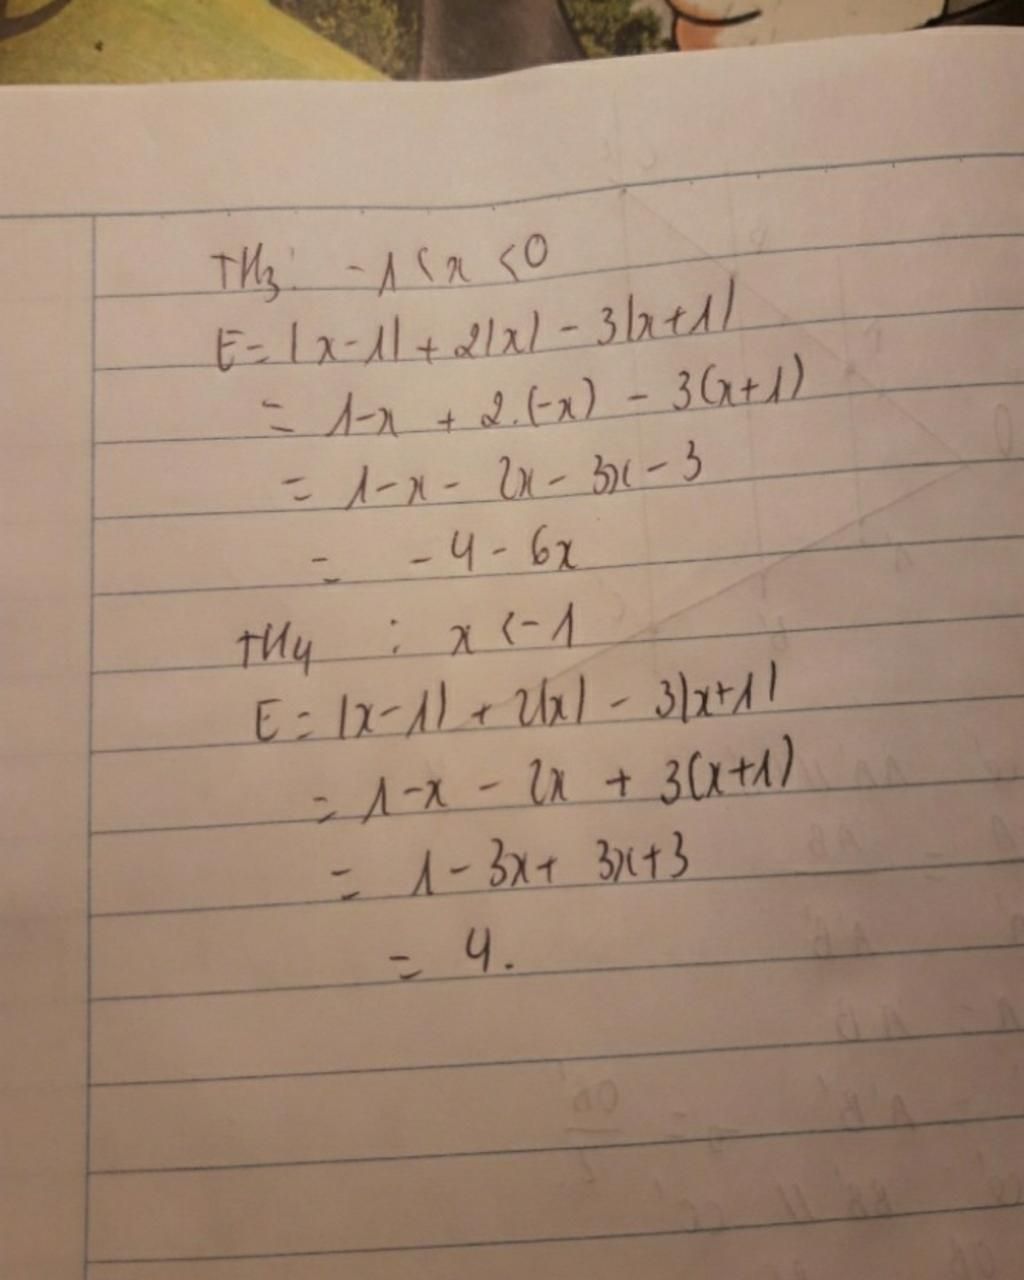 TH3: -1 < x < 0
E = |x-1| + 2|x| - 3|x+1|
= 1-x + 2.(-x) - 3(x+1)
= 1-x - 2x - 3x - 3
= -4 - 6x
TH4 : x < -1
E = |x-1| + 2|x| - 3|x+1|
= 1-x - 2x + 3(x+1)
= 1 - 3x + 3x+3
= 4.